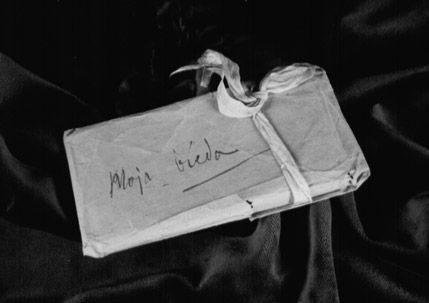 Moja bieda